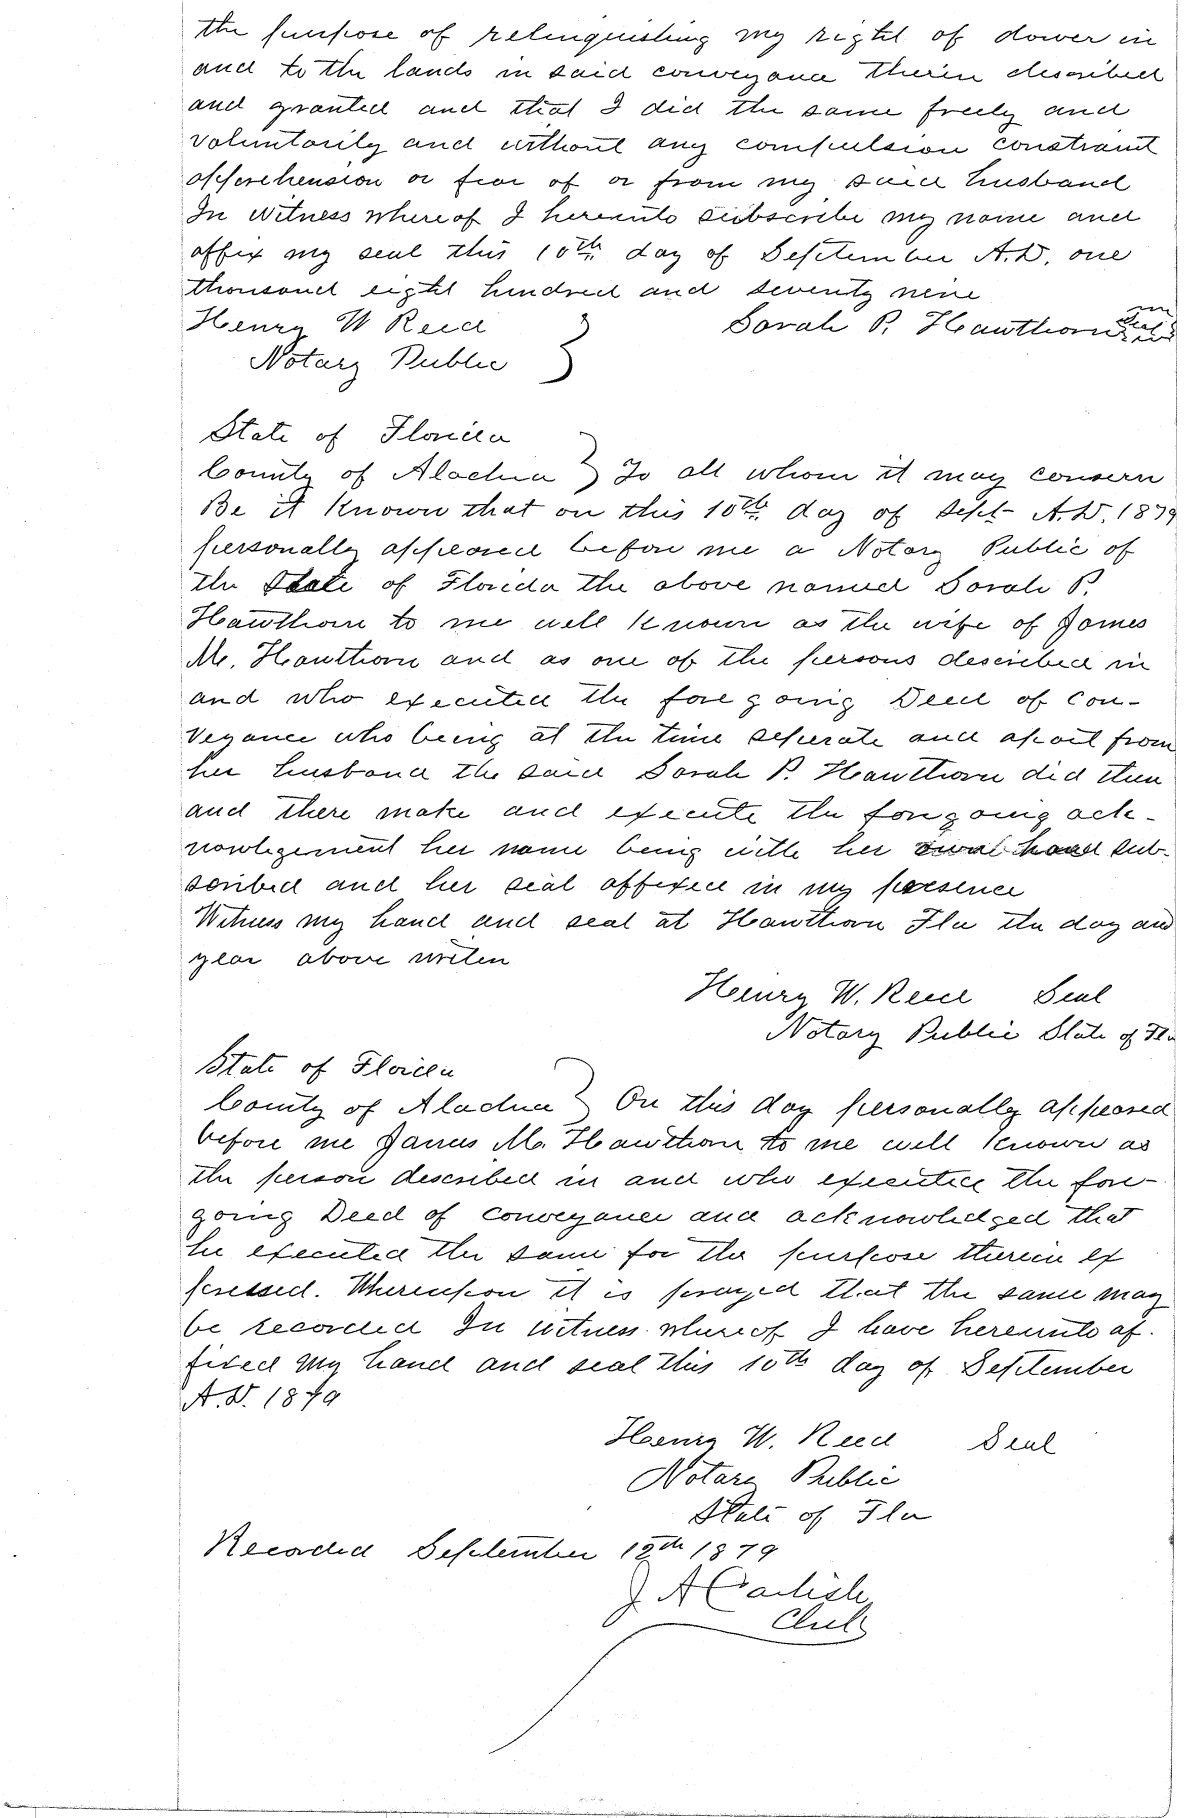 the purpose of relinquishing my right of dower in
and to the lands in said conveyance therein described
and granted and that I did the same freely and
voluntarily and without any compulsion constraint
apprehension or fear of or from my said husband
In Witness whereof I hereunto subscribe my name and
affix my seal this 10th day of September A.D. one
thousand eight hundred and seventy nine
Henry W Reed } Sarah P. Hawthorn Seal
Notary Public
State of Florida
County of Alachua } To all whom it may concern
Be it Known that on this 10th day of Sept A.D. 1879
personally appeared before me a Notary Public of
the State of Florida the above named Sarah P.
Hawthorn to me well Known as the wife of James
M. Hawthorn and as one of the persons described in
and who executed the fore going Deed of Con-
veyance who being at the time seperate and apart from
her husband the said Sarah P. Hawthorn did then
and there make and execute the forgoing ack-
nowlegement her name being with her own hand sub-
scribed and her seal affixed in my presence
Witness my hand and seal at Hawthorn Fla the day and
year above writen
Henry W. Reed Seal
Notary Public State of Fla
State of Florida
County of Alachua } On this day personally appeared
before me James M. Hawthorn to me well Known as
the person described in and who executed the fore-
going Deed of conveyance and acknowledged that
he executed the same for the purpose therein ex
pressed. Whereupon it is prayed that the same may
be recorded In witness whereof I have hereunto af-
fixed my hand and seal this 10th day of September
A.D. 1879
Henry W. Reed Seal
Notary Public
State of Fla
Recorded September 12th 1879
J A Carlisle
Clerk